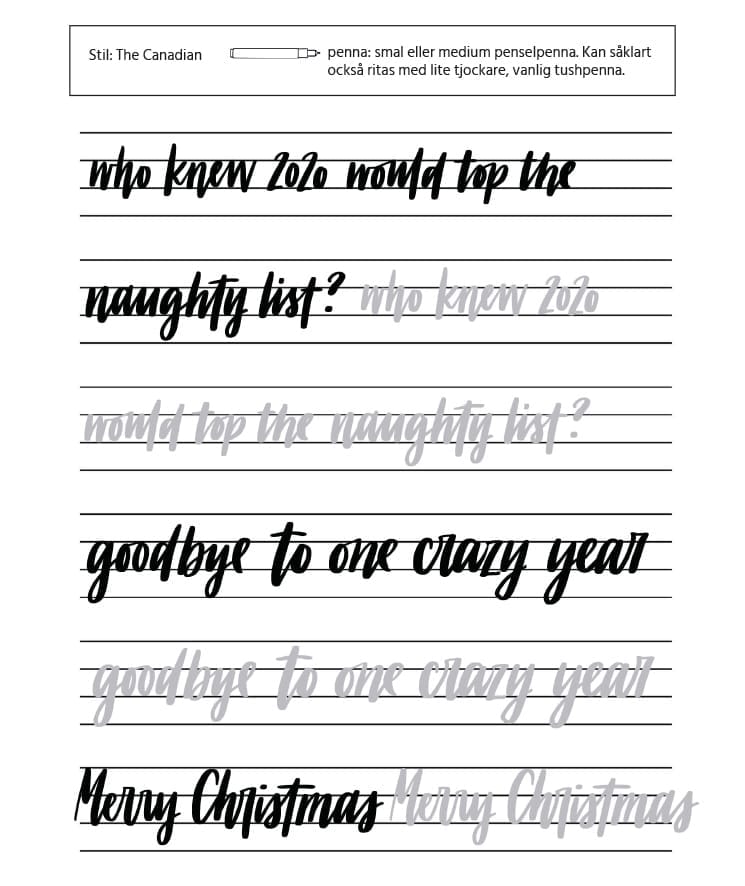 Stil: The Canadian
penna: smal eller medium penselpenna. Kan såklart
också ritas med lite tjockare, vanlig tushpenna.
who knew 2020 would top the
naughty list? who knew 2020
would top the naughty list?
goodbye to one crazy year
goodbye to one crazy year
Merry Christmas Merry Christmas